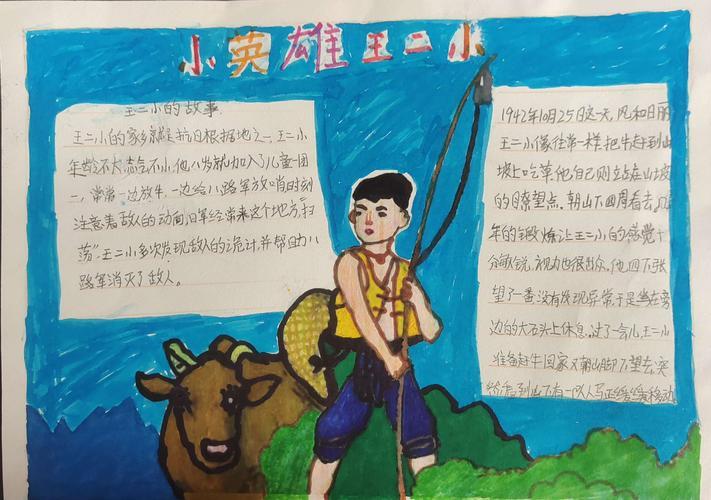 小英雄王二小
王二小的故事
王二小的家乡就是抗日根据地之一,王二小
年龄不大,志气不小,他八岁就加入了儿童团
常常一边放牛,一边给八路军放哨时刻
注意着敌人的动向,日军经常来这个地方"扫
荡",王二小多次发现敌人的诡计,并帮助八
路军消灭了敌人。
1942年10月25日这一天,风和日丽
王二小像往常一样把牛赶到山
坡上吃草,他自己则立站在山坡
的瞭望点。朝山下四周看去,几
年的锻炼让王二小的感觉十
分敏锐,视力也很出众,他四下张
望了一番没有发现异常,于是坐在旁
边的大石头上休息,过了一会儿,王二小
准备赶牛回家又朝山脚下望去,突
然看到山下有一队人马正缓缓移动